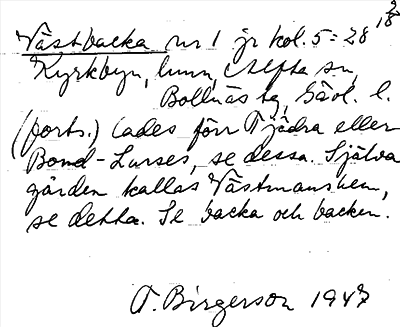 Västbacka nr 1 jr kol. 5 = 28 2/18
Kyrkbyn, Alfta sn,
Bollnäs tg, Gävl. l.
(forts.) Cades förr Tjädra eller
Bond-Larses, se dessa. Själva
gården kallas Västmanshem,
se detta. Se backa och backen.
T. Birgerson 1947